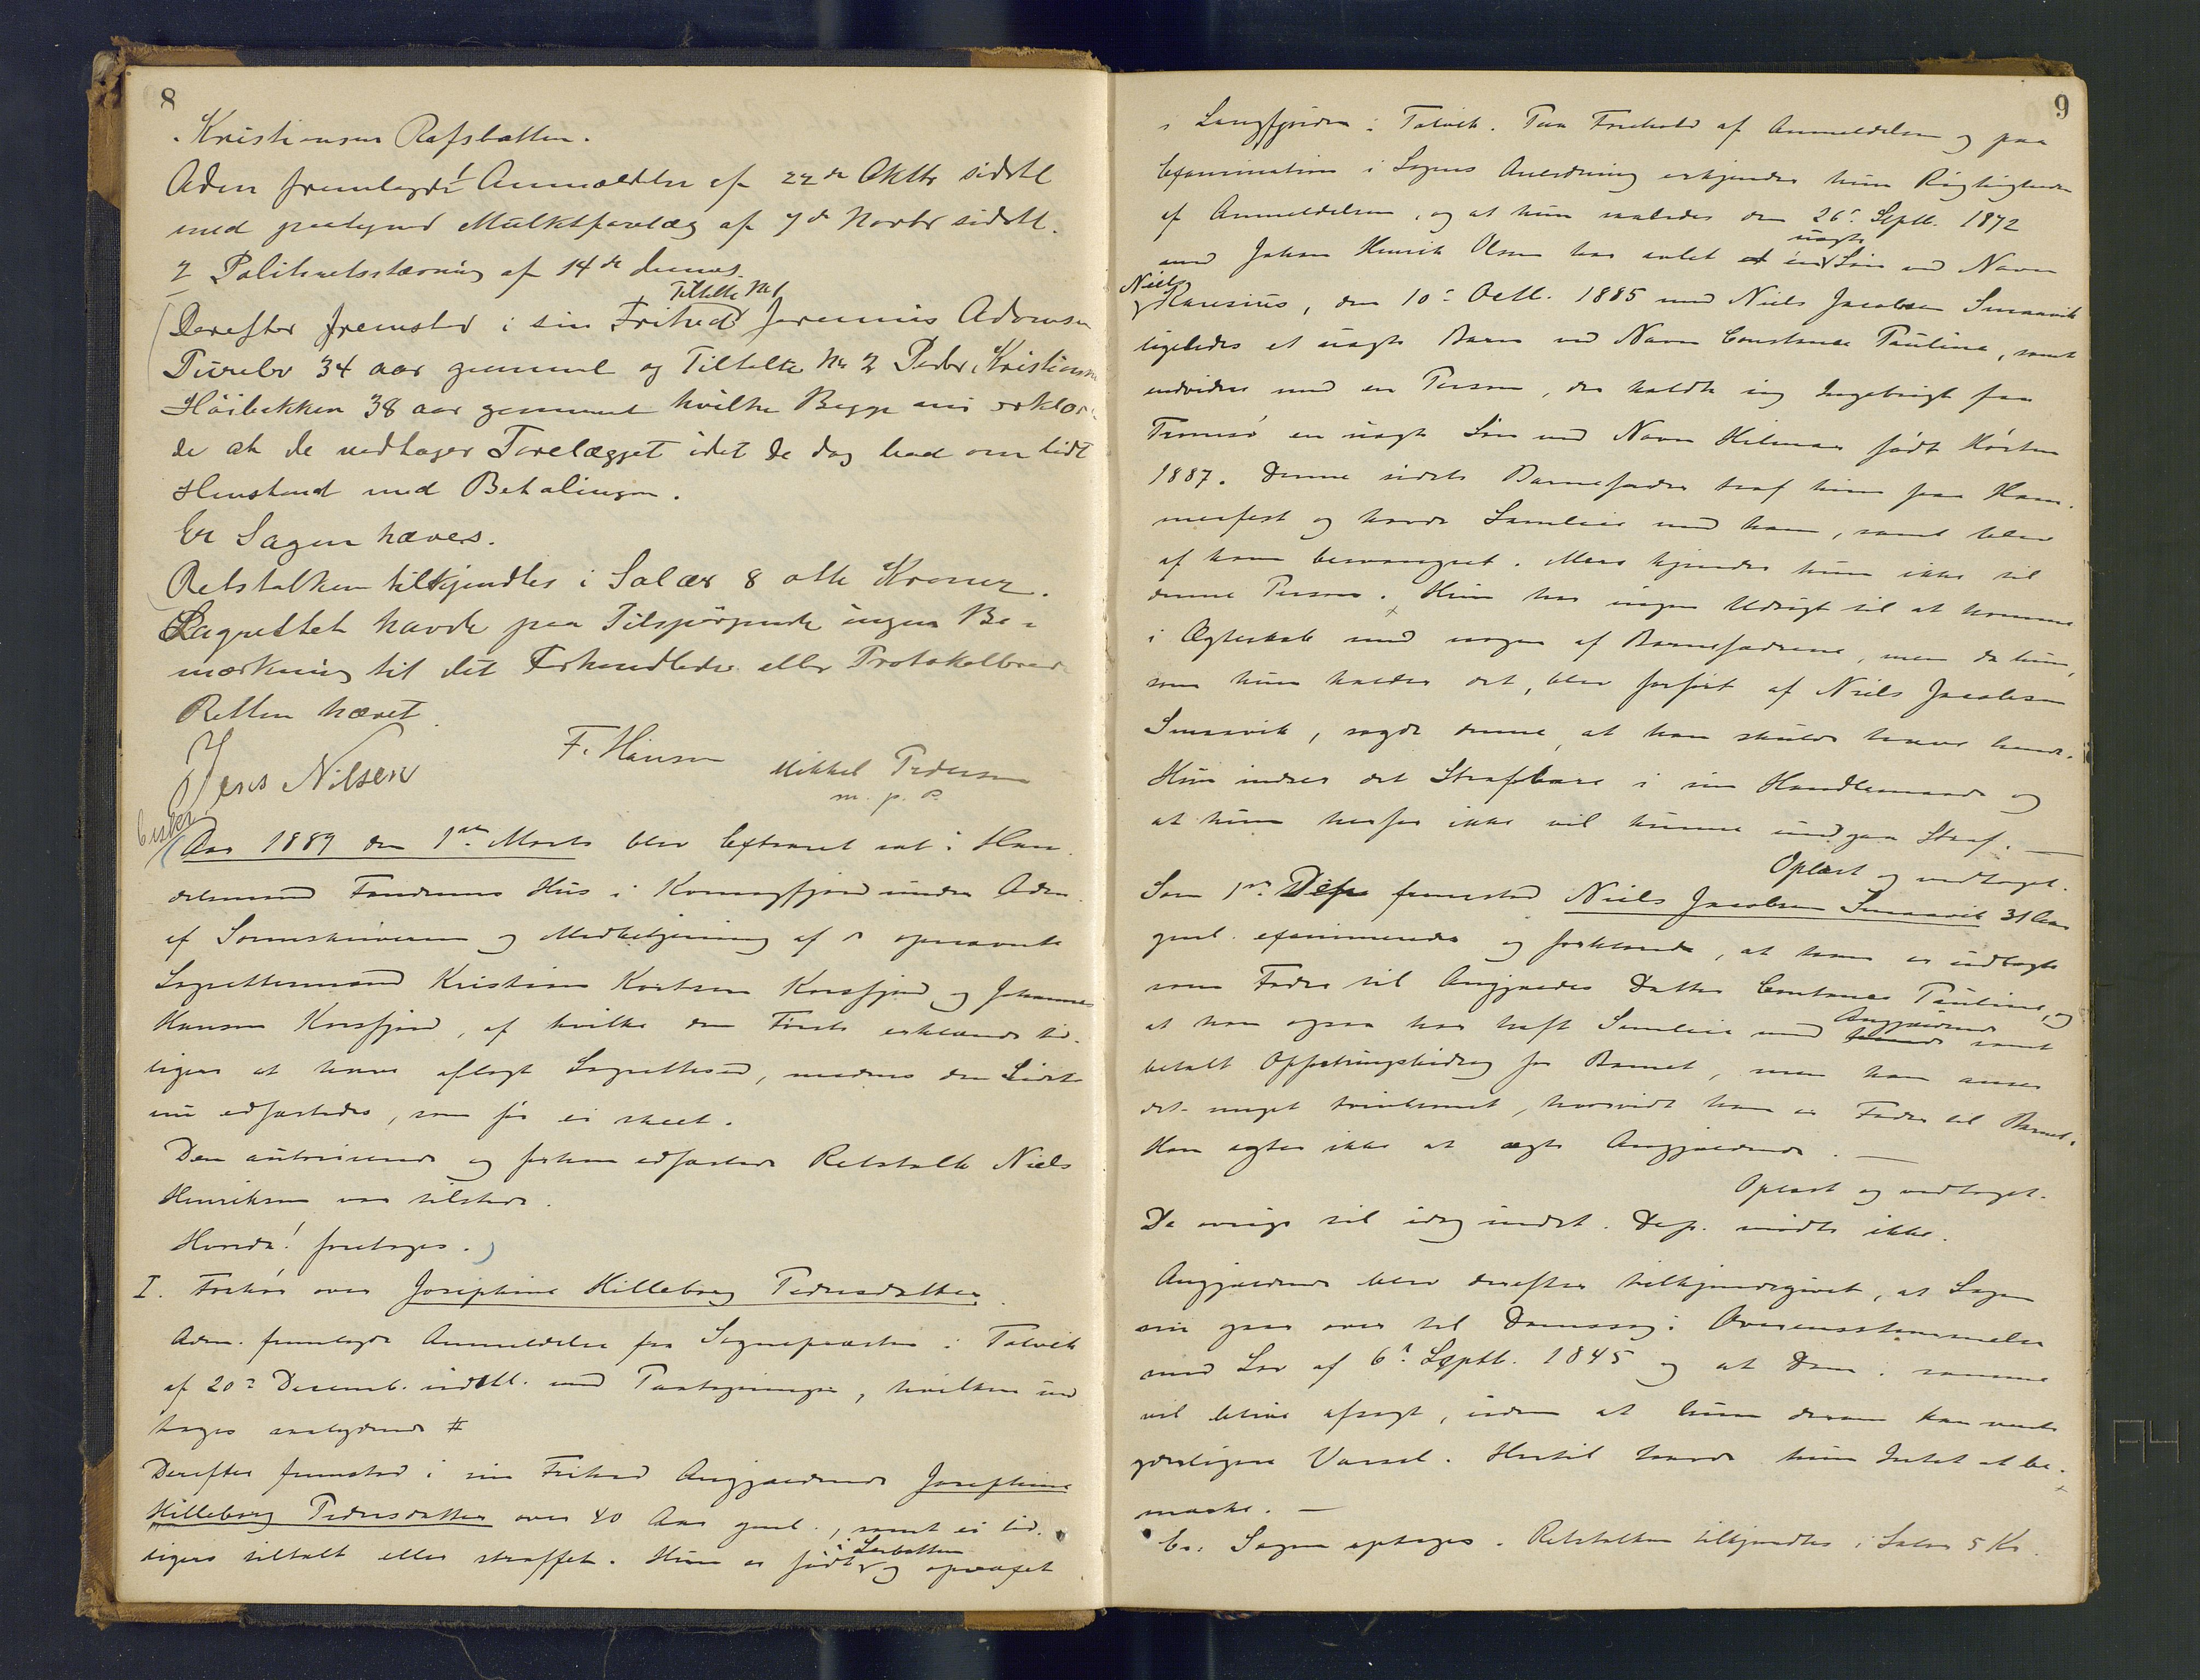 8
Kristiansen Rafsbotten.
Adm fremlagde! Anmældelse af 22de Oktbr sidstl
med paategned Mulktforelæg af 7de Novbr sidstl.
2 Politiretsstævning af 14de dennes.
Tiltalte No 1
Derefter fremstod i sin Frihed Jeremias Adamsen
34 aar gammel og Tiltalte No 2 Peder Kristiansen
Höibakken 38 aar gammel hvilke Begge nu erklær-
de at de vedtager Forelægget idet de dog bad om lidt
Henstand med Betalingen.
Er Sagen hæves.
Retstolken tilkjendtes i Salær 8 otte Kroner.
Lagrettet havde paa Tilspörgende ingen Be-
mærkning til det Forhandlede eller Protokollered
Retten hævet.
F. Hansen
Jens Nilsen
Mikkel Pedersen
m. p. P.
Aar 1889 den 1ste Marts blev Extraret sat i Han-
delsmand Hus i Komagfjord under Adm.
af Sorenskriveren og Medbetjening af opnævnte
Lagrettesmænd Kristian Kortsen Korsfjord og Johannes
Hansen Korsfjord, af hvilke den Förste erklærede tid-
ligere at have aflagt Lagrettesed, medens den Sidste
nu edfæstedes, som för ei skeet.
Den autoriserede og forhen edfæstede Retstolk Niels
Henriksen var tilstede.
Hvorda! foretoges.
I. Forhör over Josephine Hilleborg Pedersdatter.
Adm. fremlagde Anmeldelse fra Sognepræsten i Talvik
af 20de Decemb. sidstl. med Paategninger, hvilken ind
tages saalydende #
Derefter fremstod i sin Frihed Angjældende Josephine
Hilleborg Pedersdatter over 40 Aar gml., samt ei tid-
ligere tiltalt eller straffet. Hun er født i Lerbotten og opvoxet
9
i Langfjorden i Talvik. Paa Forehold af Anmeldelsen og paa
Examination i Sagens Anledning erkjender hun Rigtigheden
af Anmeldelsen, og at hun saaledes den 26de Septb. 1872
med Johan Henrik Olsen har avlet en uægte Sön ved Navn
Niels, den 10de Octb. 1885 med Niels Jacobsen Smaavik
ligeledes et uægte Barn ved Navn Constance Pauline, samt
endvidere med en Person, der kaldte sig Ingebrigt fra
Tromsö en uægte Sön ved Navn Hilmar födt Hösten
1887. Denne sidste Barnefader traf hun paa Ham-
merfest og havde Samleie med ham, samt blev
af ham besvangret. Mere kjender hun ikke til
denne Person. Hun har ingen Udsigt til at komme
i Ægteskab med nogen af Barnefædrene, men da hun,
som hun kalder det, blev forfört af Niels Jacobsen
Smaavik, sagde denne, at han skulde have hende.
Hun indser det Strafbare i sin Handlemaade og
at hun herfor ikke vil kunne undgaa Straf. —
Oplæst og vedtaget.
Som 1ste Dep. fremstod Niels Jacobsen Smaavik 31 Aar
gml. examineredes og forklarede, at han er udlagt
som Fader til Angjældendes Datter Constance Pauline, og
at han ogsaa har haft Samleie med Angjældende samt
betalt Opfostringsbidrag for Barnet, men han anser
det meget tvivlsomt, hvorvidt han er Fader til Barnet.
Han agter ikke at ægte Angjældende. —
Oplæst og vedtaget.
De övrige til idag indst. Dep. mödte ikke.
Angjældende blev derefter tilkjendegivet, at Sagen
nu gaar over til Domssag i Overensstemmelse
med Lov af 6te Septb. 1845 og at Dom i samme
vil blive afsagt, uden at hun derom kan vente
yderligere Varsel. Hertil havde hun Intet at be-
mærke. —
Er: Sagen optages. Retstolken tilkjendtes i Salær 5 Kr.